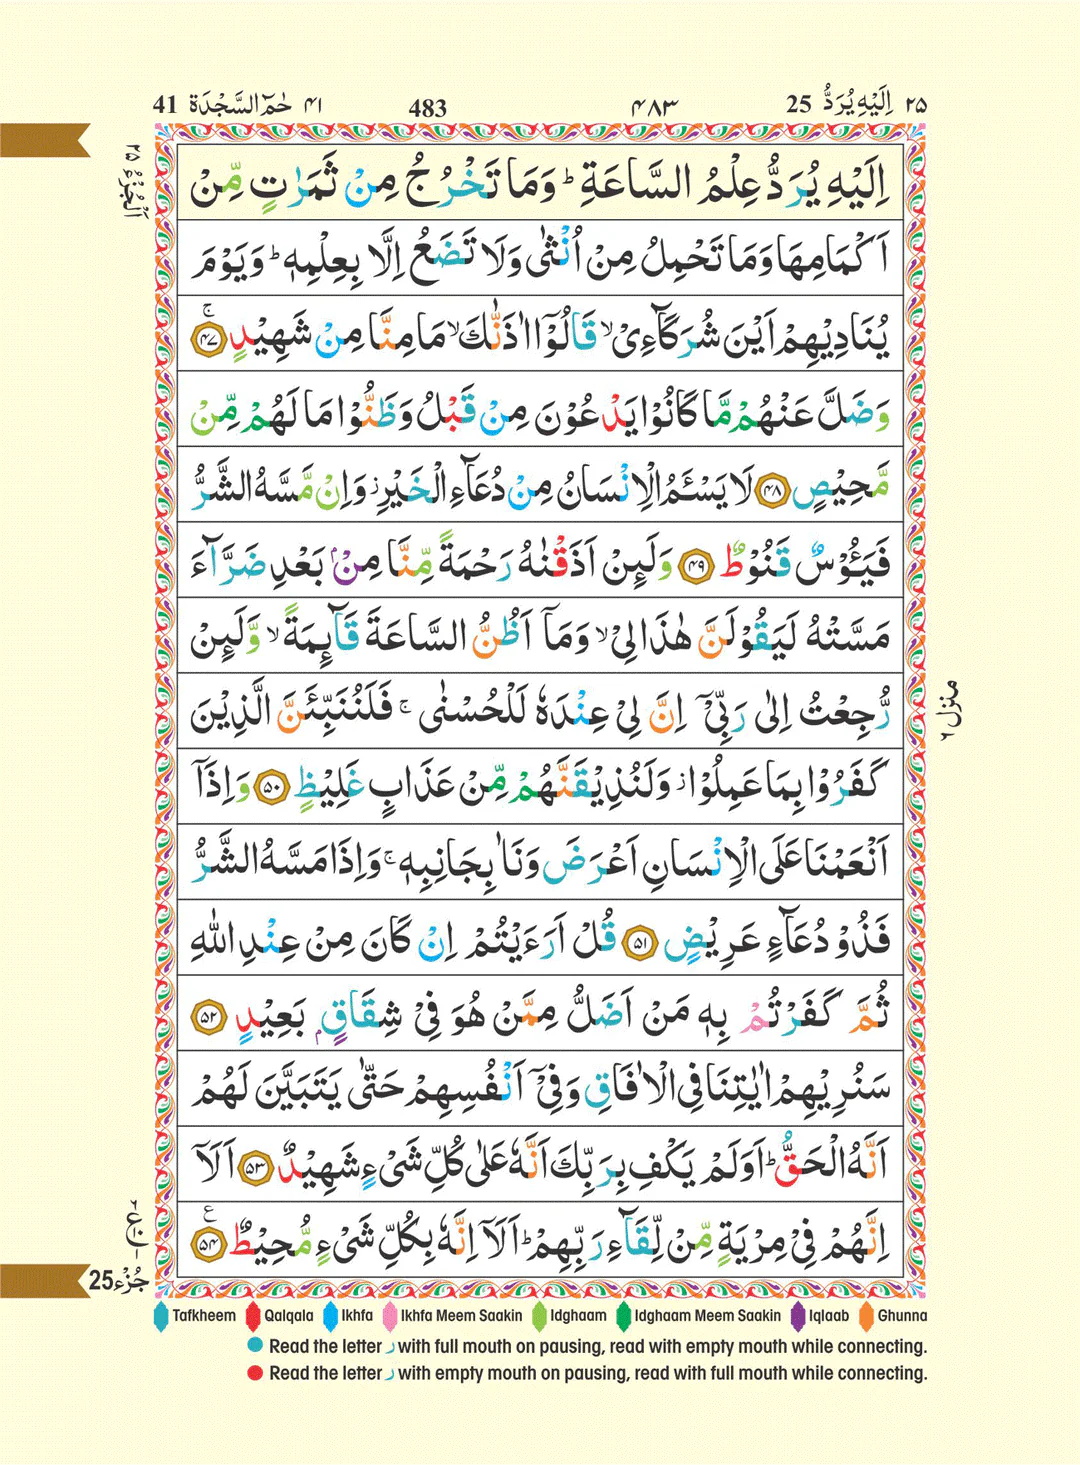 ٢٥ اِلَيْهِ يُرَدُّ 25 ٤٨٣ 483 ٤١ حٰمٓ السَّجْدَة 41
اَلْجُزْءُ ٢٥
اِلَيْهِ يُرَدُّ عِلْمُ السَّاعَةِ ؕ وَمَا تَخْرُجُ مِنْ ثَمَرٰتٍ مِّنْ
اَكْمَامِهَا وَمَا تَحْمِلُ مِنْ اُنْثٰى وَلَا تَضَعُ اِلَّا بِعِلْمِهٖ ؕ وَيَوْمَ
يُنَادِيْهِمْ اَيْنَ شُرَكَآءِىْ ۙ قَالُوْۤا اٰذَنّٰكَ ۙ مَا مِنَّا مِنْ شَهِيْدٍ ۚ ﴿۴۷﴾
وَضَلَّ عَنْهُمْ مَّا كَانُوْا يَدْعُوْنَ مِنْ قَبْلُ وَظَنُّوْا مَا لَهُمْ مِّنْ
مَّحِيْصٍ ﴿۴۸﴾ لَا يَسْـَٔمُ الْاِنْسَانُ مِنْ دُعَآءِ الْخَيْرِ ۫ وَاِنْ مَّسَّهُ الشَّرُّ
فَيَـُٔوْسٌ قَنُوْطٌ ﴿۴۹﴾ وَلَئِنْ اَذَقْنٰهُ رَحْمَةً مِّنَّا مِنْۢ بَعْدِ ضَرَّآءَ
مَسَّتْهُ لَيَقُوْلَنَّ هٰذَا لِىْ ۙ وَمَاۤ اَظُنُّ السَّاعَةَ قَآئِمَةً ۙ وَّلَئِنْ
رُّجِعْتُ اِلٰى رَبِّىْۤ اِنَّ لِىْ عِنْدَهٗ لَلْحُسْنٰى ۚ فَلَنُنَبِّئَنَّ الَّذِيْنَ
كَفَرُوْا بِمَا عَمِلُوْا ۫ وَلَنُذِيْقَنَّهُمْ مِّنْ عَذَابٍ غَلِيْظٍ ﴿۵۰﴾ وَاِذَاۤ
اَنْعَمْنَا عَلَى الْاِنْسَانِ اَعْرَضَ وَنَاٰ بِجَانِبِهٖ ۚ وَاِذَا مَسَّهُ الشَّرُّ
فَذُوْ دُعَآءٍ عَرِيْضٍ ﴿۵۱﴾ قُلْ اَرَءَيْتُمْ اِنْ كَانَ مِنْ عِنْدِ اللّٰهِ
ثُمَّ كَفَرْتُمْ بِهٖ مَنْ اَضَلُّ مِمَّنْ هُوَ فِىْ شِقَاقٍۭ بَعِيْدٍ ﴿۵۲﴾
سَنُرِيْهِمْ اٰيٰتِنَا فِى الْاٰفَاقِ وَفِىْۤ اَنْفُسِهِمْ حَتّٰى يَتَبَيَّنَ لَهُمْ
اَنَّهُ الْحَقُّ ؕ اَوَلَمْ يَكْفِ بِرَبِّكَ اَنَّهٗ عَلٰى كُلِّ شَىْءٍ شَهِيْدٌ ﴿۵۳﴾ اَلَاۤ
اِنَّهُمْ فِىْ مِرْيَةٍ مِّنْ لِّقَآءِ رَبِّهِمْ ؕ اَلَاۤ اِنَّهٗ بِكُلِّ شَىْءٍ مُّحِيْطٌ ﴿۵۴﴾
منزل ٦
جُزْء 25
Tafkheem Qalqala Ikhfa Ikhfa Meem Saakin Idghaam Idghaam Meem Saakin Iqlaab Ghunna
Read the letter ر with full mouth on pausing, read with empty mouth while connecting.
Read the letter ر with empty mouth on pausing, read with full mouth while connecting.